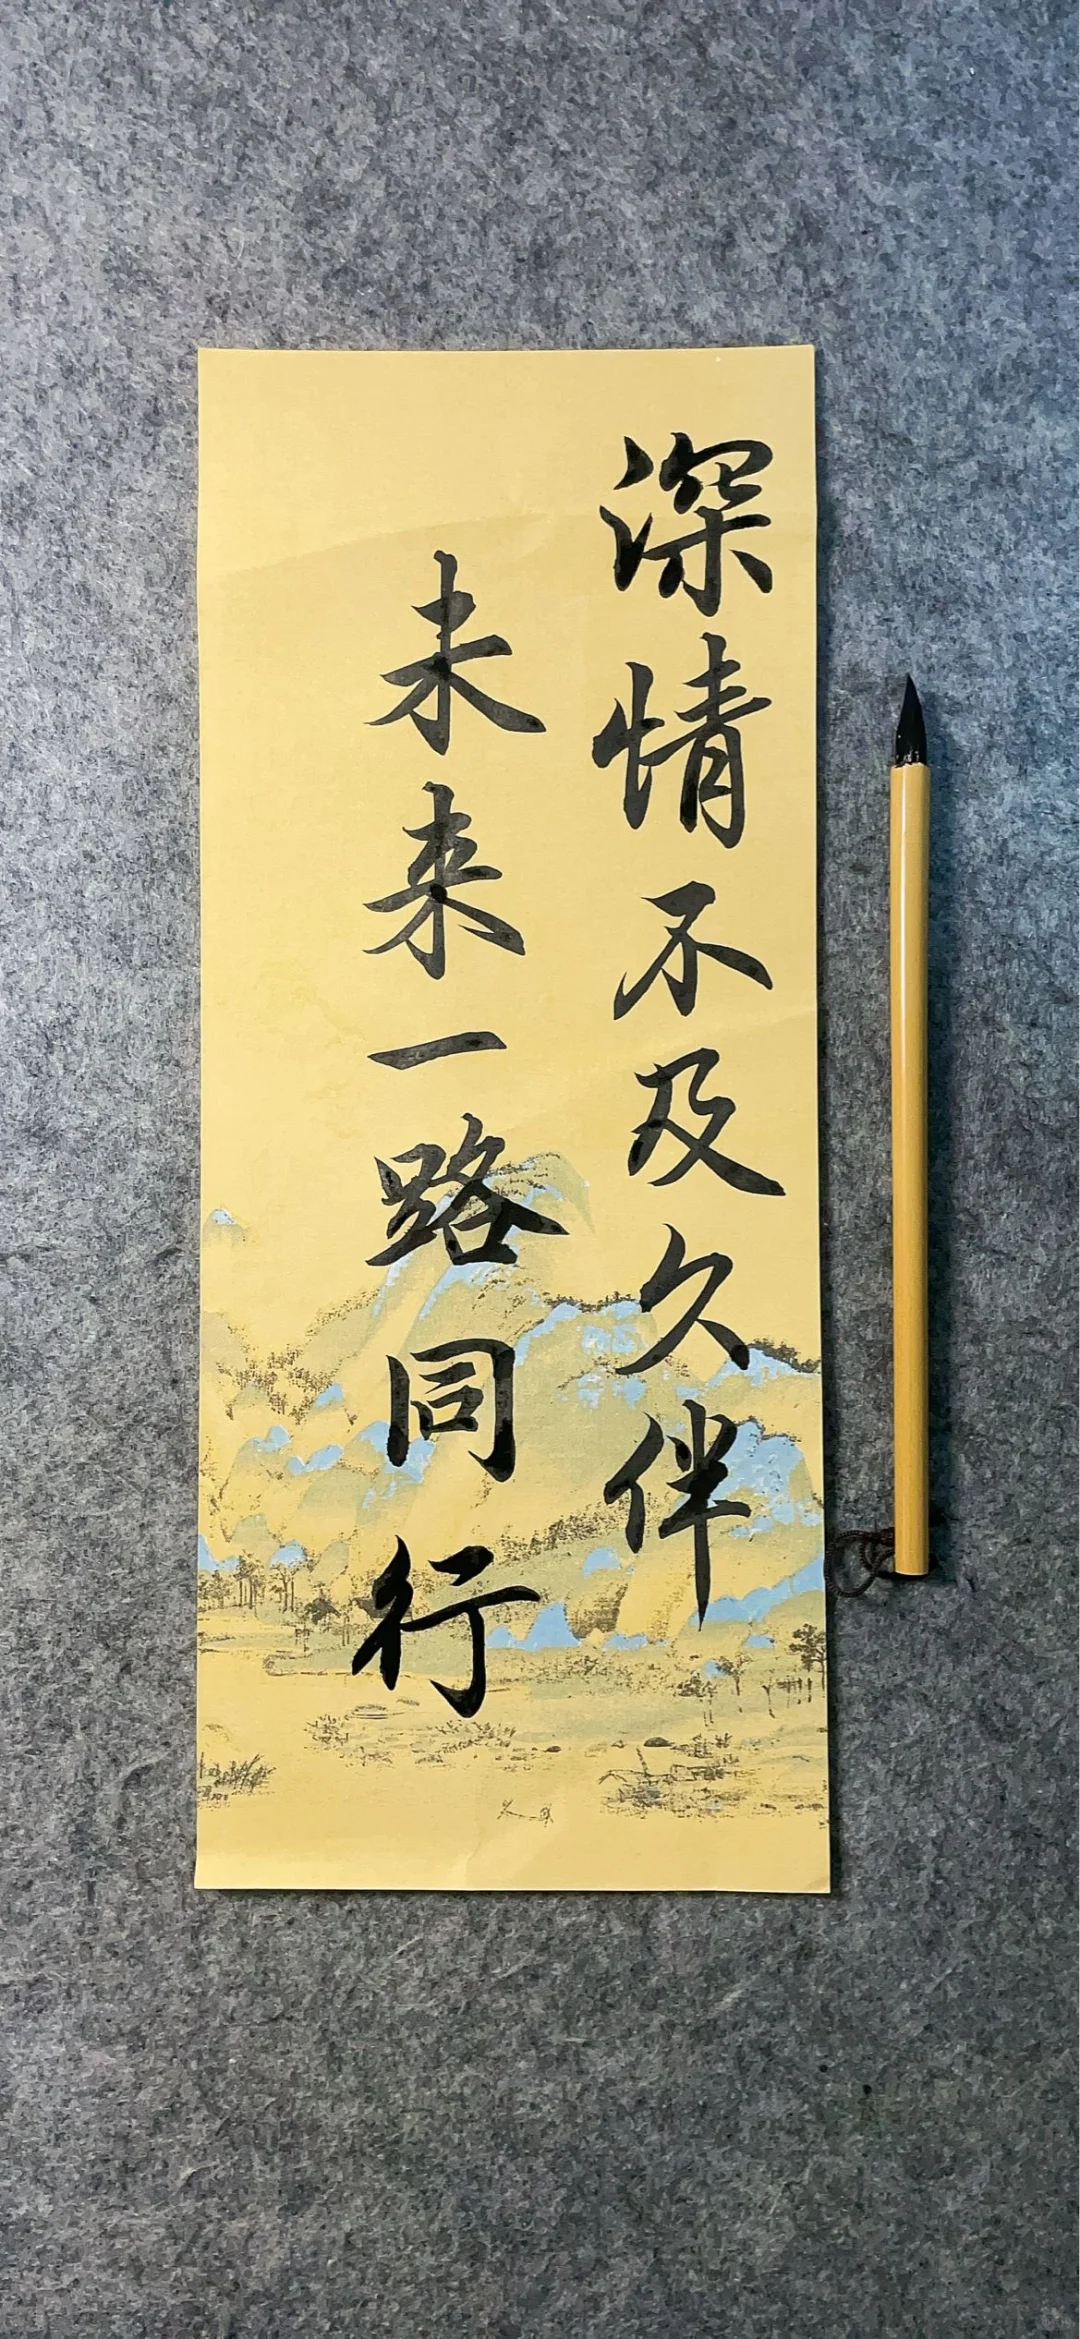 深情不及久伴
未来一路同行